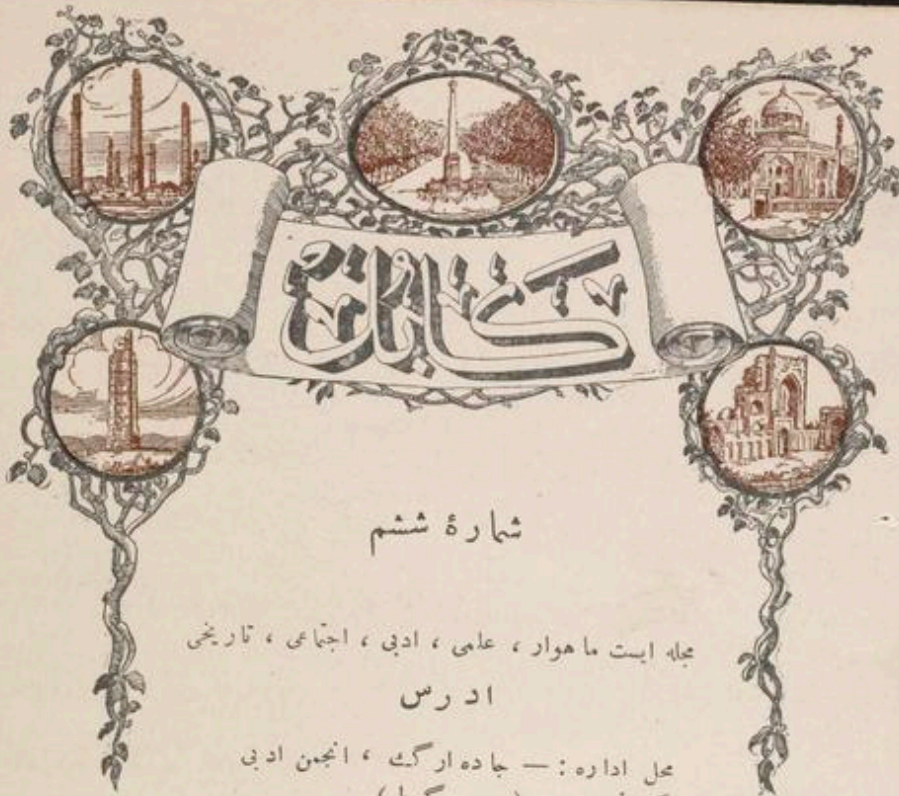 کابل
شمارهٔ ششم
مجله ایست ماهوار ، علمی ، ادبی ، اجتماعی ، تاریخی
ادرس
محل اداره : — جاده ارگ ، انجمن ادبی